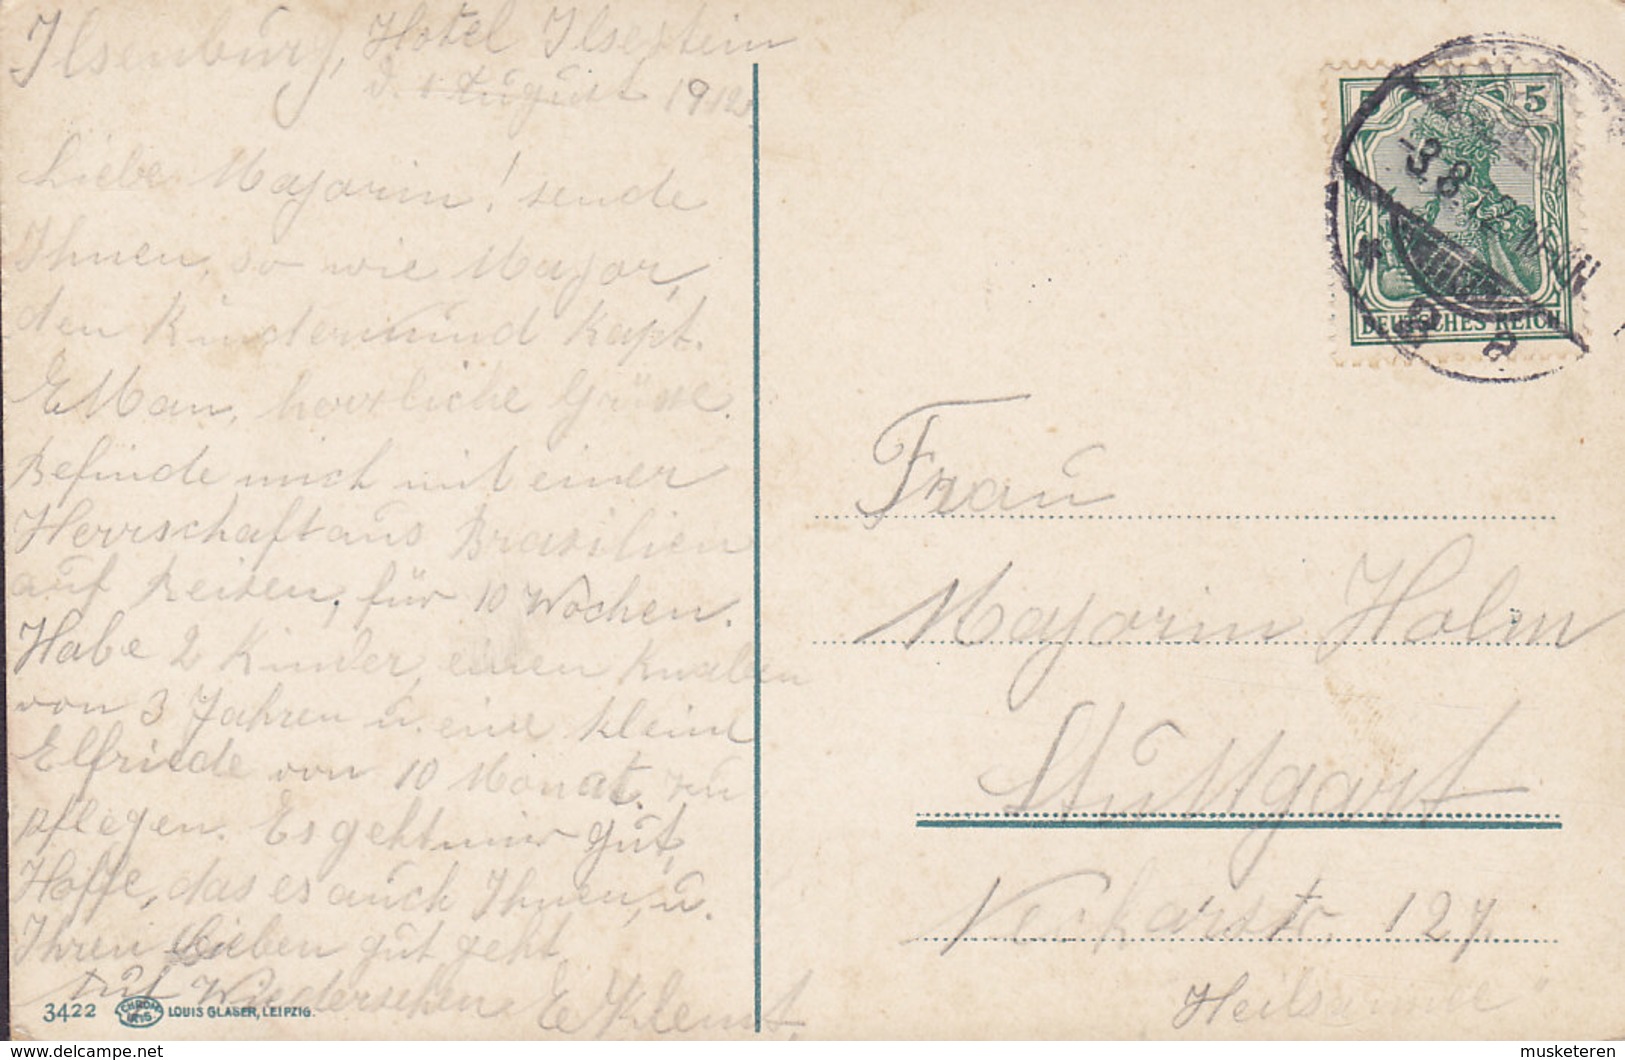 Ilsenburg, Hotel Ilsestein
d. 1 August 1912
Liebe Majorin! sende
Ihnen, so wie Major,
den Kindern und Kapt.
herrliche Grüsse.
Befinde mich mit einer
Herrschaft aus Brasilien
auf Reisen, für 10 Wochen.
Habe 2 Kinder, einen Knaben
von 3 Jahren u. eine kleine
Elfriede von 10 Monat. zu
pflegen. Es geht mir gut,
Hoffe, das es auch Ihnen, u.
Ihren Lieben gut geht.
Auf Wiedersehen E Klemt.
3422 LOUIS GLASER, LEIPZIG.
5 5
DEUTSCHES REICH
3.8.12.
Frau
Majorin Holm
Stuttgart
Neckarstr. 127
musketeren